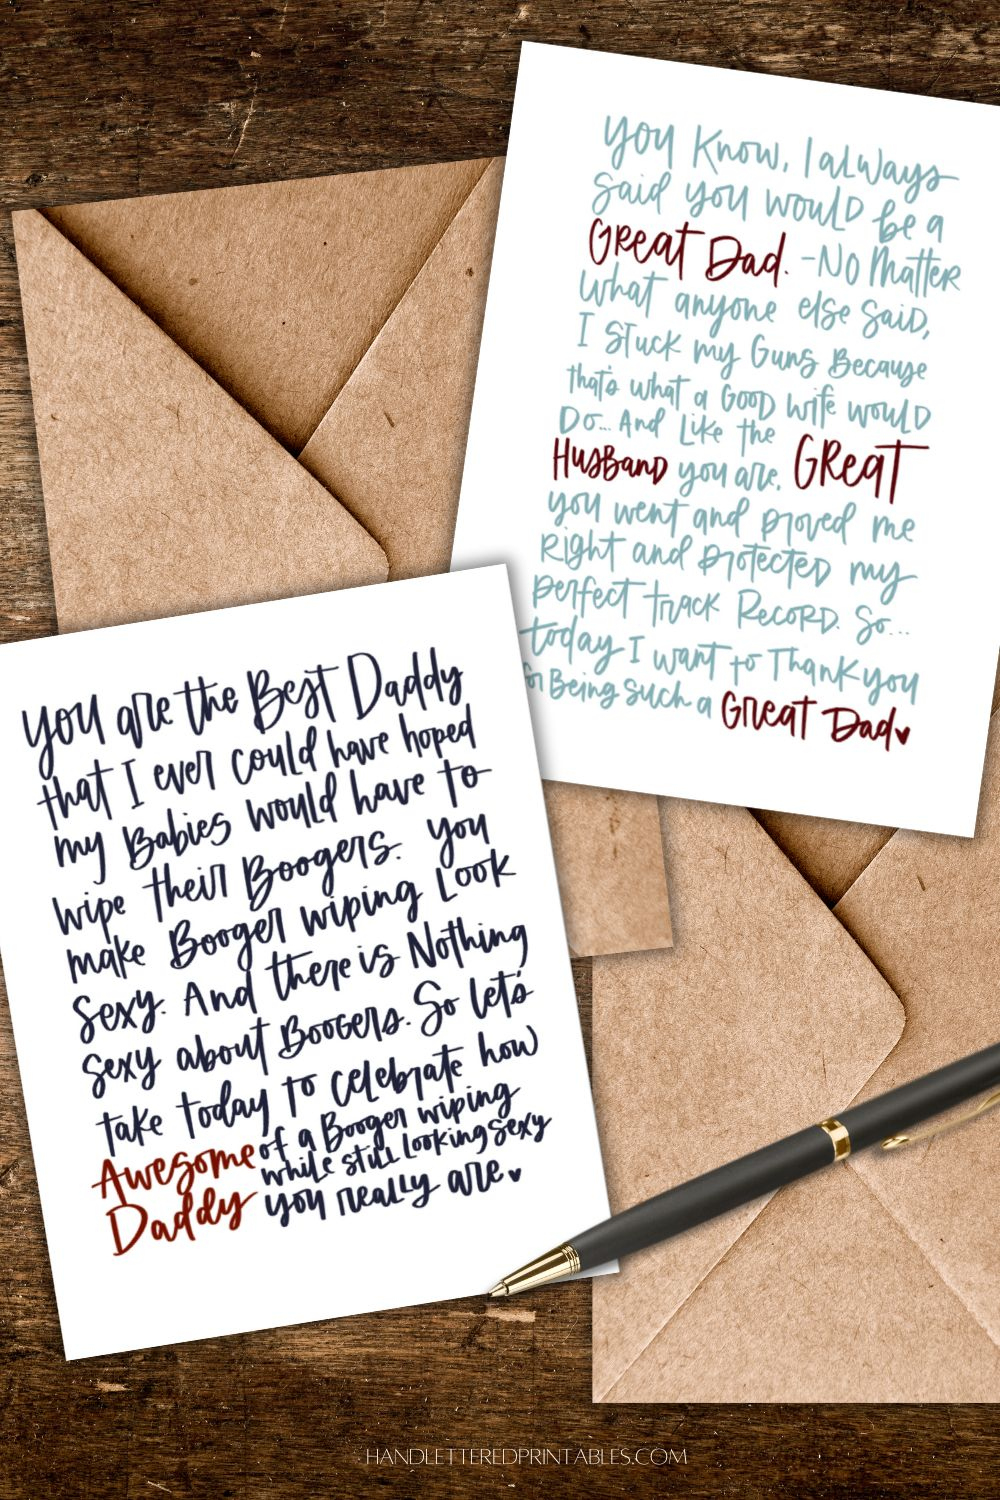 You Know, I always
said you would be a
Great Dad. - No Matter
what anyone else said,
I stuck my Guns Because
that's what a Good wife would
Do... And Like the Great
Husband you are,
you went and proved me
Right and protected my
perfect track Record. So...
today I want to Thank you
for Being such a Great Dad
You are the Best Daddy
that I ever could have hoped
my Babies would have to
wipe their Boogers. You
make Booger wiping Look
Sexy. And there is Nothing
Sexy about Boogers. So let's
take today to celebrate how
Awesome of a Booger wiping
Daddy while still looking sexy
you really are
HANDLETTEREDPRINTABLES.COM